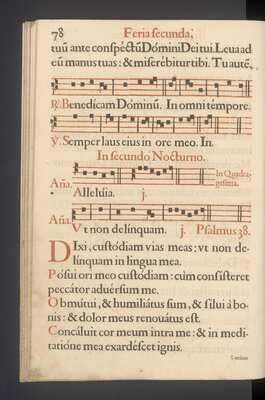 78 Feria secunda,
tuū ante conspéctū Dómini Dei tui. Leua ad
eū manus tuas: & miserébitur tibi. Tu autē,
℟. Benedícam Dóminū. In omni témpore.
℣. Semper laus eius in ore meo. In.
In secundo Nocturno.
In Quadra-
gesima.
Aña.
Allelúia. j.
Aña.
Vt non delínquam. j. Psalmus 38.
DIxi, custodiam vias meas: vt non de-
línquam in lingua mea.
Pósui ori meo custódiam: cùm consísteret
peccátor aduérsum me.
Obmútui, & humiliátus sum, & sílui á bo-
nis: & dolor meus renouátus est.
Concáluit cor meum intra me: & in medi-
tatióne mea exardéscet ignis.